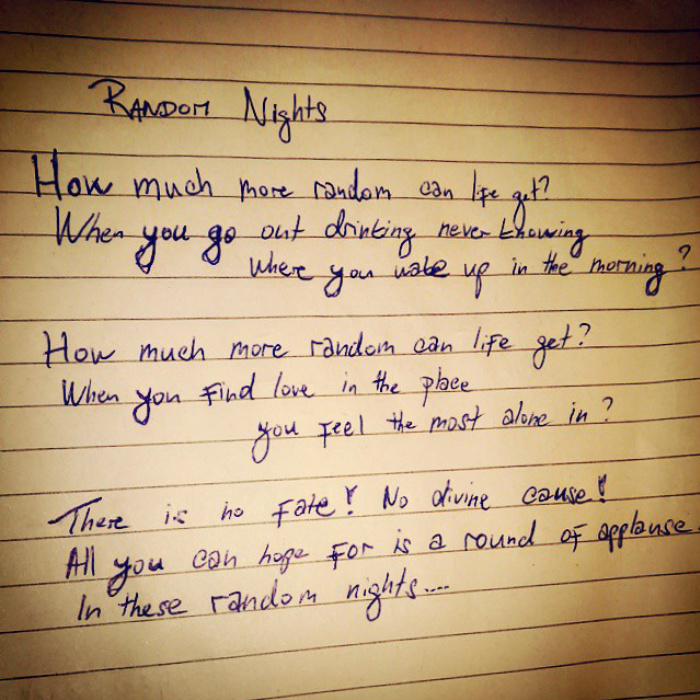 Random Nights
How much more random can life get?
When you go out drinking never knowing
where you wake up in the morning?
How much more random can life get?
When you find love in the place
you feel the most alone in?
There is no fate! No divine cause!
All you can hope for is a round of applause.
In these random nights....